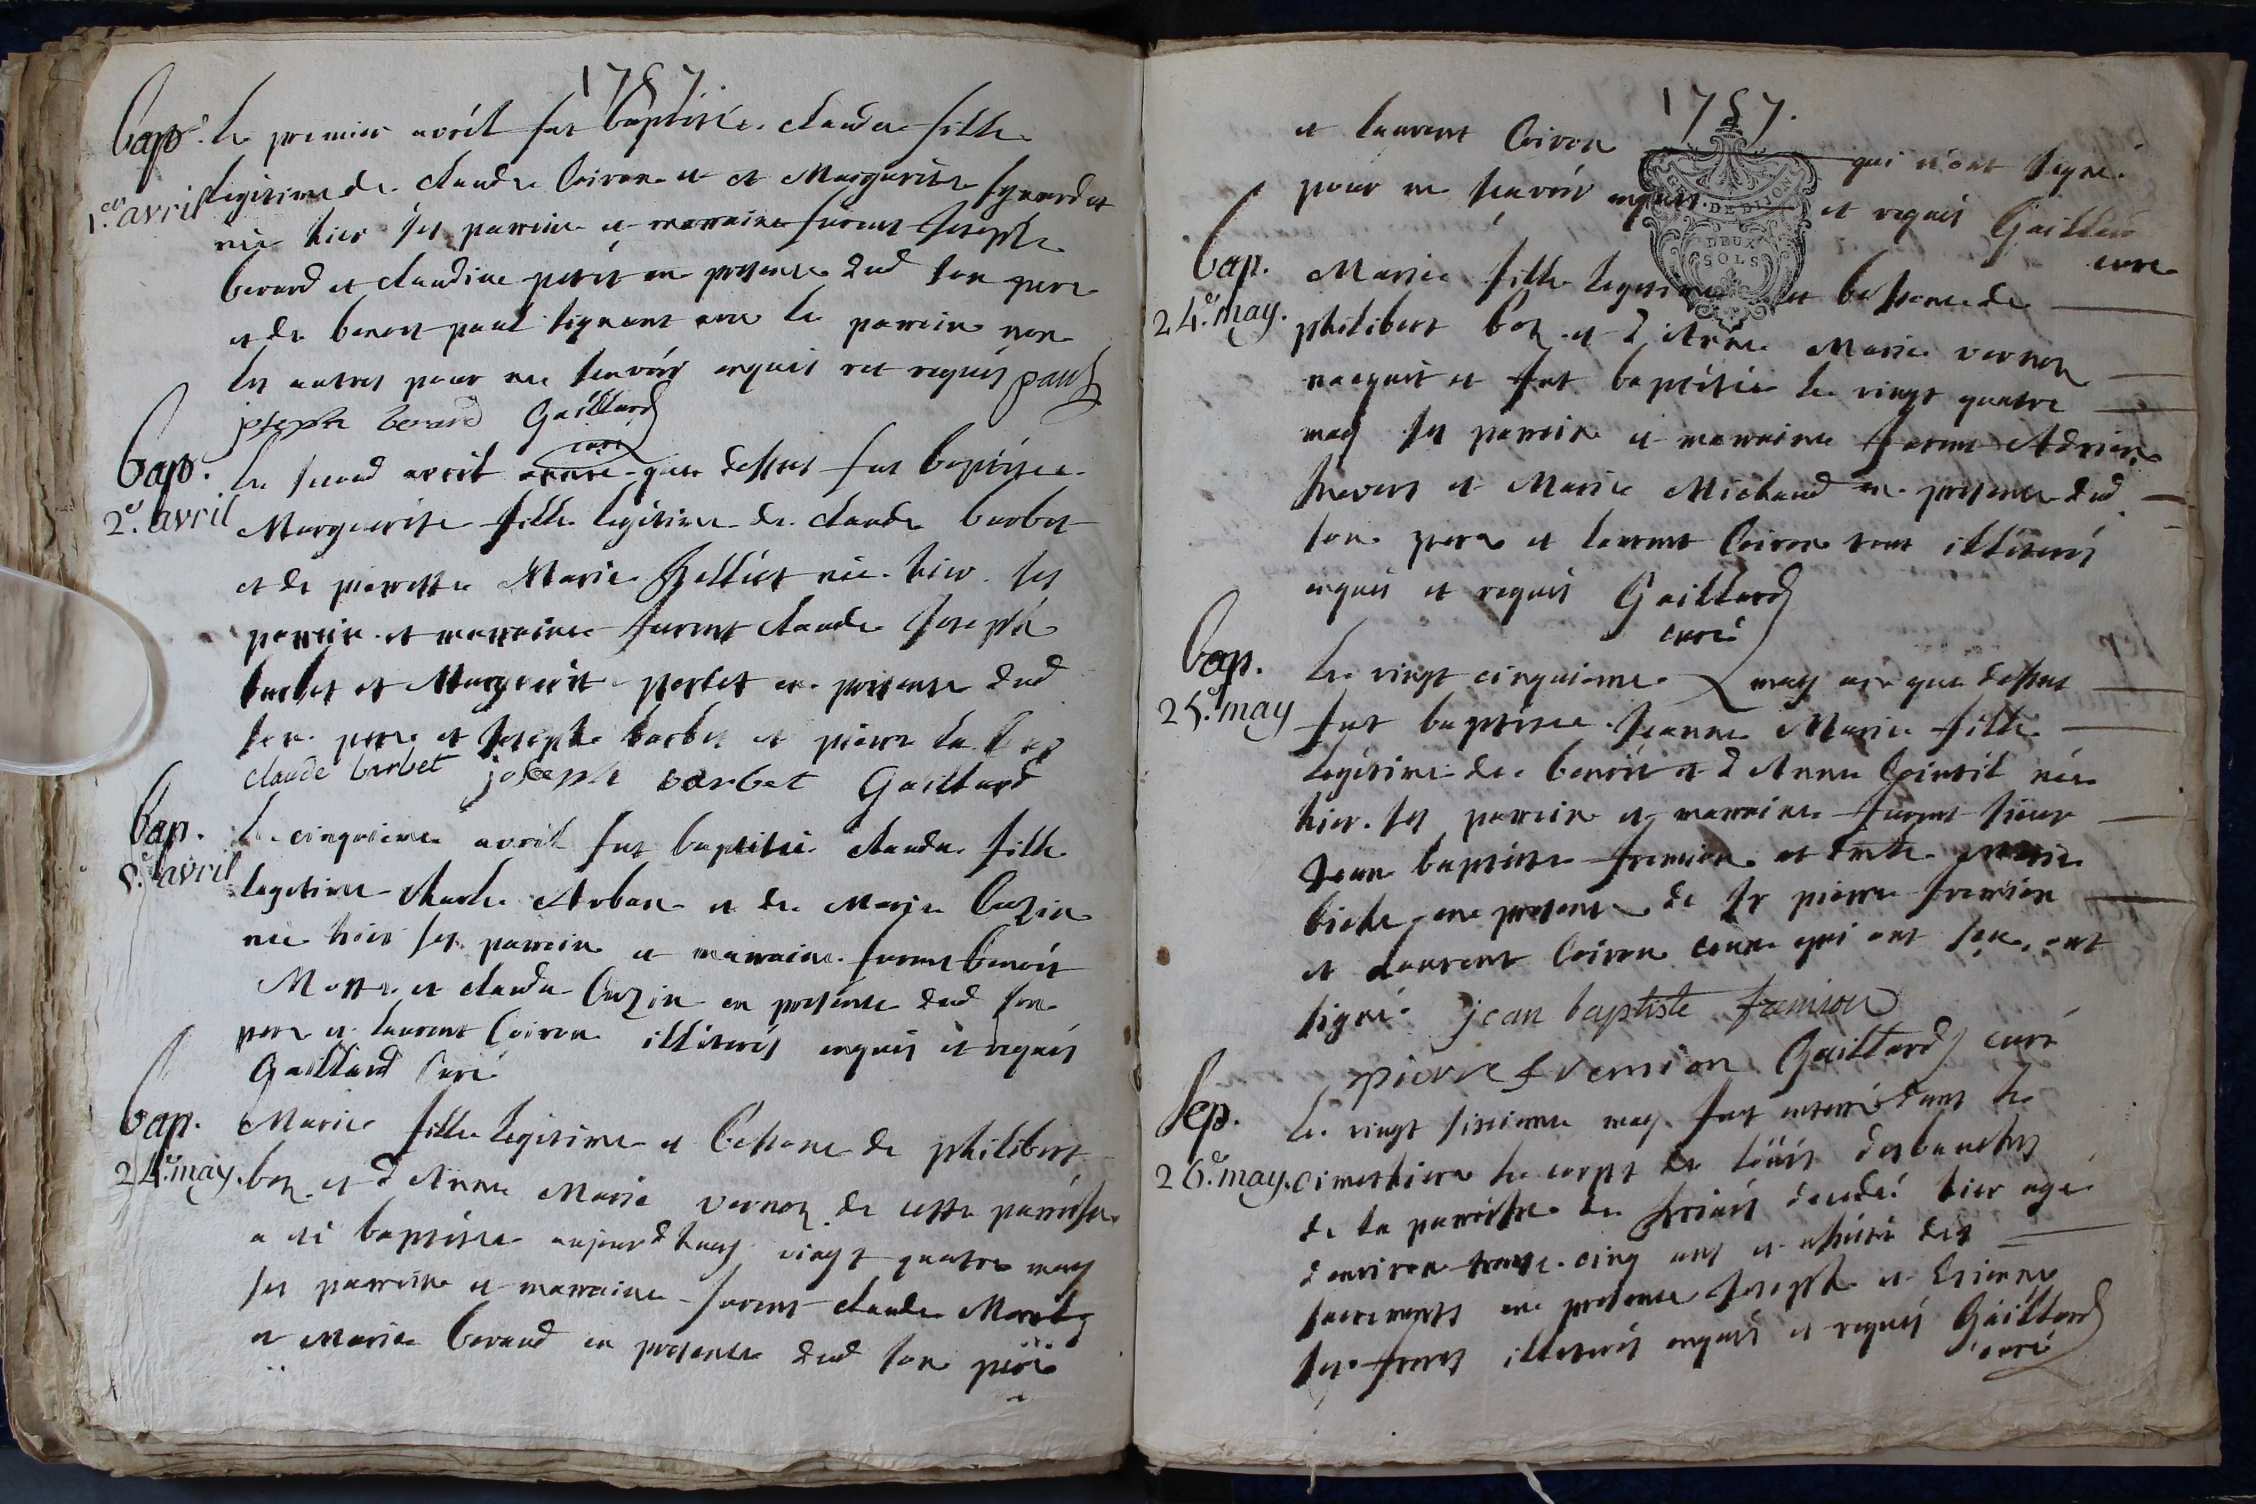 1757.
bap. le premier avril fut baptisée claudine fille
1.er avril legitime de claude Coiron et et Marguerite
née hier ses parrein et marraine furent joseph
berard et claudine petit en presence dud son pere
et de benoit paul signant avec le parrein non
les autres pour ne scavoir enquis et requis paul
joseph berard Gaillard
curé
bap. le second avril que dessus fut baptisée
2.e avril Marguerite fille legitime de claude barbet
et de pierrette Marie née hier ses
parrein et marraine furent claude joseph
barbet et Marguerite en presence dud
son pere et joseph barbet et pierre
claude barbet joseph barbet Gaillard
bap. le cinquieme avril fut baptisée claudine fille
5.e avril legitime charle Arban et de Marie Cuzin
née hier ses parrein et marraine furent benoit
et claudine Cuzin en presence dud son
pere et laurent Coiron illiterés enquis et requis
Gaillard Curé
bap. Marie fille legitime et bessone de philibert
24.e may. boz et d'Anne Marie vernoz de cette parroisse
a été baptisée aujourd'huy vingt quatre may
ses parrein et marraine furent claude
et Marie beraud en presence dud son pere
1757.
et laurent Coiron qui n'ont signé
pour ne scavoir enquis et requis Gaillard
curé
GEN. DE DIJON
DEUX
SOLS
bap. Marie fille legitime et bessone de
24.e may. philibert boz et d'Anne Marie vernoz
nacquit et fut baptisée le vingt quatre
may ses parrein et marraine furent Adrien
et Marie Michaud en presence dud
son pere et laurent Coiron tous illiterés
enquis et requis Gaillard
curé
bap. le vingt cinquieme may an que dessus
25.e may fut baptisée jeanne Marie fille
legitime de benoit et d'Anne née
hier ses parrein et marraine furent sieur
jean baptiste fremion et Marie
en presence de sr pierre fremion
et laurent Coiron ceux qui ont sçu ont
signé jean baptiste fremion
pierre fremion Gaillard curé
Sep. le vingt sixieme may fut enterré dans le
26.e may. cimethiere le corps de loüis desbauches
de la parroisse de decedé hier agé
d'environ trente cinq ans et assisté des
sacrements en presence joseph et Etienne
ses freres illiterés enquis et requis Gaillard
curé